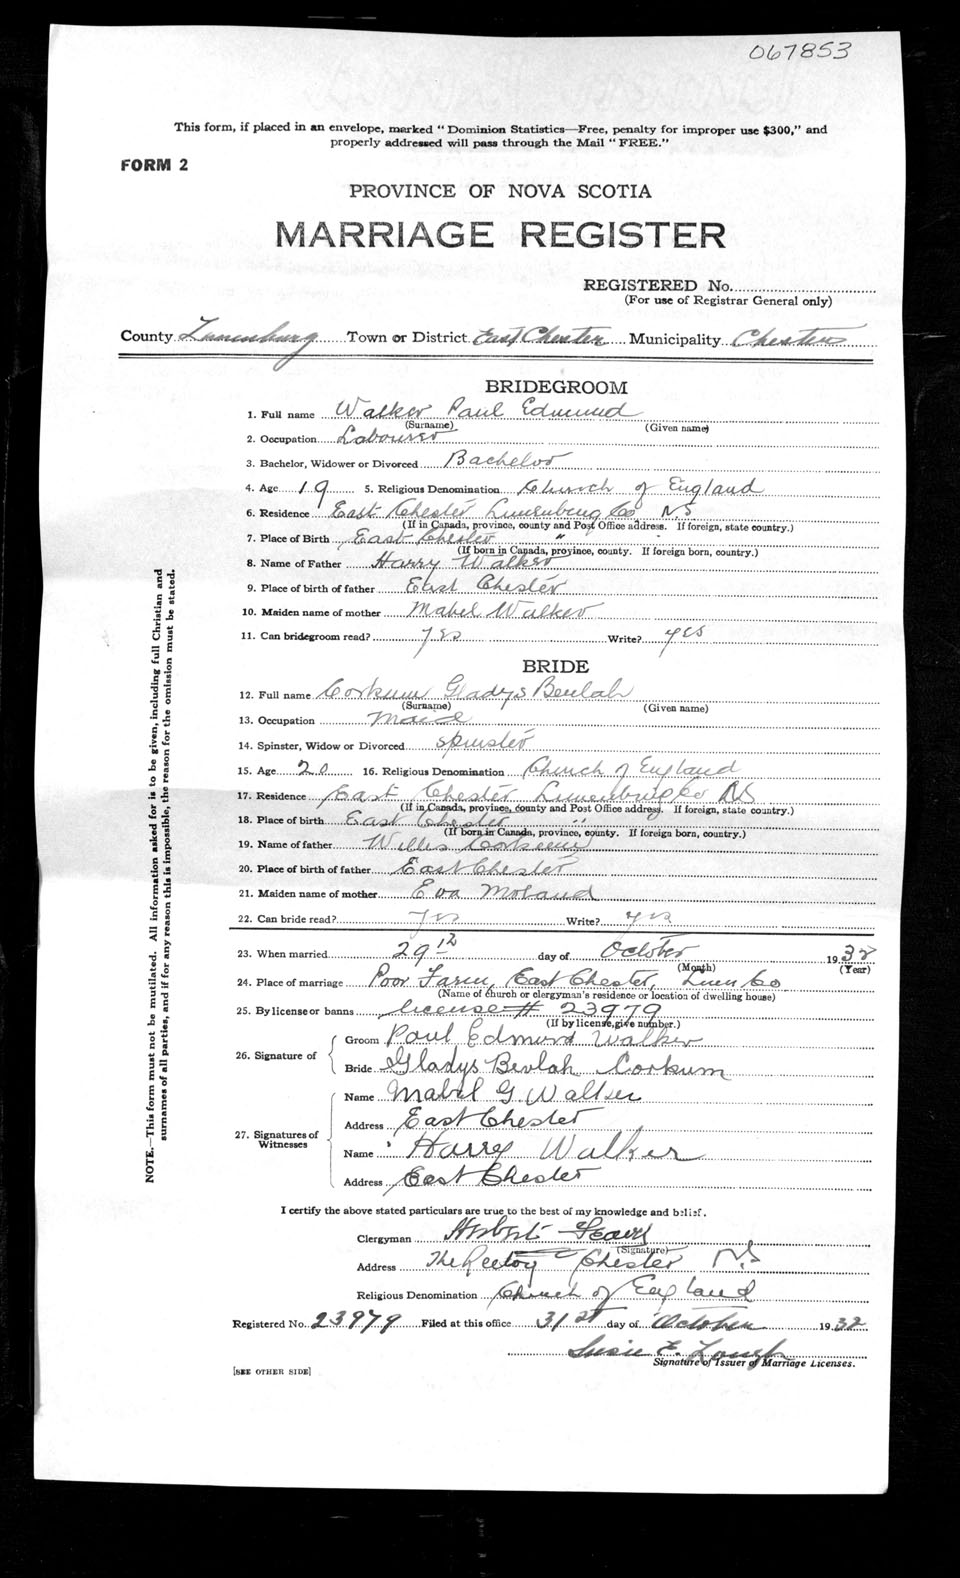 067853
This form, if placed in an envelope, marked "Dominion Statistics—Free, penalty for improper use $300," and
properly addressed will pass through the Mail "FREE."
FORM 2
PROVINCE OF NOVA SCOTIA
MARRIAGE REGISTER
REGISTERED No.
(For use of Registrar General only)
County Lunenburg Town or District East Chester Municipality Chester
BRIDEGROOM
1. Full name Walker Paul Edmund
(Surname) (Given name)
2. Occupation Labourer
3. Bachelor, Widower or Divorced Bachelor
4. Age 19 5. Religious Denomination Church of England
6. Residence East Chester Lunenburg Co NS
(If in Canada, province, county and Post Office address. If foreign, state country.)
7. Place of Birth East Chester " "
(If born in Canada, province, county. If foreign born, country.)
8. Name of Father Harry Walker
9. Place of birth of father East Chester
10. Maiden name of mother Mabel Walker
11. Can bridegroom read? yes Write? yes
BRIDE
12. Full name Corkum Gladys Beulah
(Surname) (Given name)
13. Occupation Maid
14. Spinster, Widow or Divorced spinster
15. Age 20 16. Religious Denomination Church of England
17. Residence East Chester Lunenburg Co NS
(If in Canada, province, county and Post Office address. If foreign, state country.)
18. Place of birth East Chester "
(If born in Canada, province, county. If foreign born, country.)
19. Name of father Willis Corkum
20. Place of birth of father East Chester
21. Maiden name of mother Eva Moland
22. Can bride read? yes Write? yes
23. When married 29th day of October 1932
(Month) (Year)
24. Place of marriage Poor Farm, East Chester, Lunen Co
(Name of church or clergyman's residence or location of dwelling house)
25. By license or banns license # 23979
(If by license, give number.)
26. Signature of
Groom Paul Edmund Walker
Bride Gladys Beulah Corkum
27. Signatures of Witnesses
Name Mabel G Walker
Address East Chester
Name Harry Walker
Address East Chester
I certify the above stated particulars are true to the best of my knowledge and belief.
Clergyman Herbert
(Signature)
Address The Rectory Chester N.S.
Religious Denomination Church of England
Registered No. 23979 Filed at this office 31st day of October 1932
Susie E.
Signature of Issuer of Marriage Licenses.
[SEE OTHER SIDE]
NOTE.—This form must not be mutilated. All information asked for is to be given, including full Christian and
surnames of all parties, and if for any reason this is impossible, the reason for the omission must be stated.